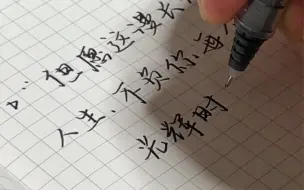 “但愿这漫长
人生，不负你每
光辉时